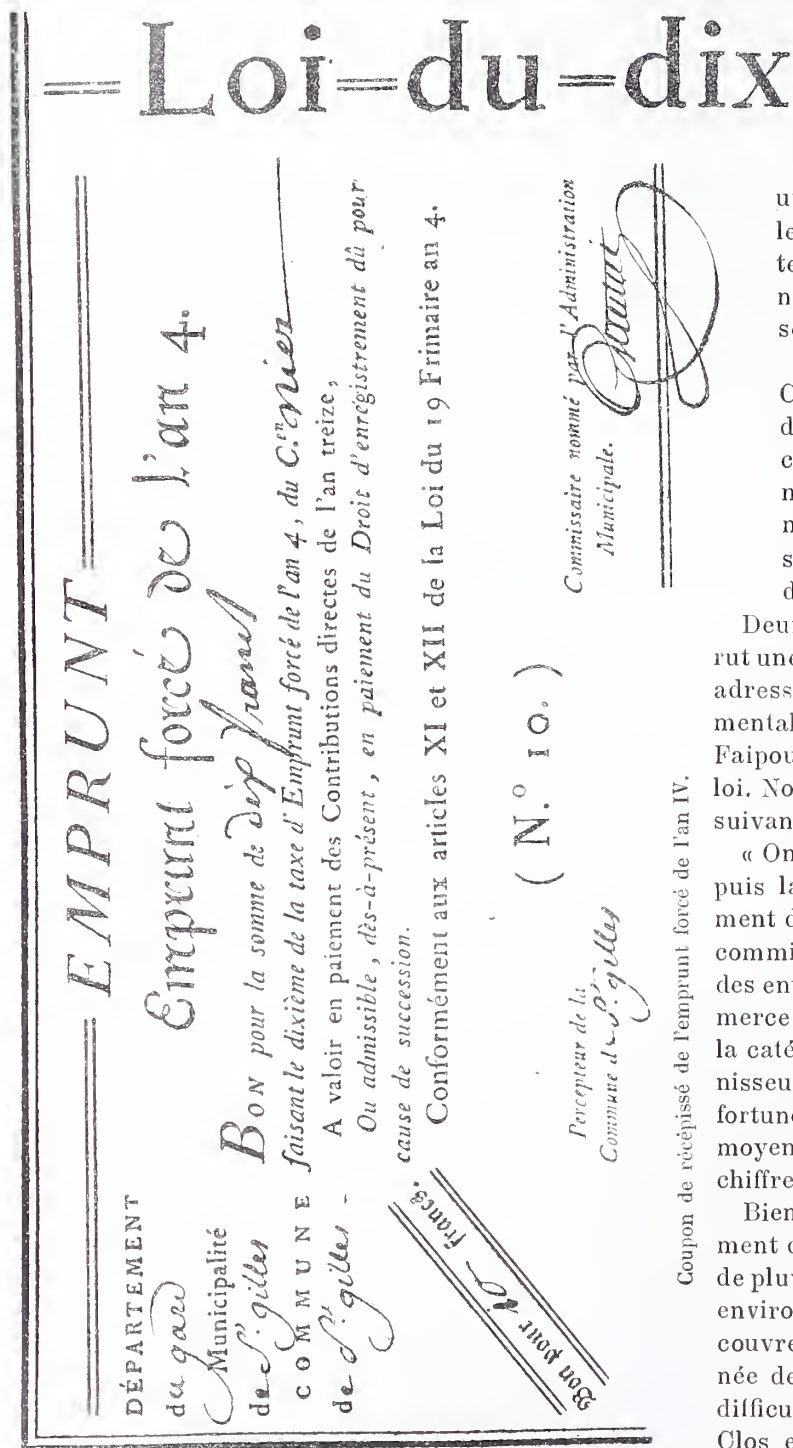 =Loi=du=dix
EMPRUNT
Emprunt forcé de l'an 4.
DÉPARTEMENT
du gard
Municipalité
de St. gilles
COMMUNE
de St. gilles -
BON pour la somme de dix francs
faisant le dixième de la taxe d'Emprunt forcé de l'an 4, du C.en
A valoir en paiement des Contributions directes de l'an treize,
Ou admissible, dès-à-présent, en paiement du Droit d'enrégistrement dû pour
cause de succession.
Conformément aux articles XI et XII de la Loi du 19 Frimaire an 4.
Bon pour 10 francs.
( N.° 10. )
Percepteur de la
Commune de St. gilles
Commissaire nommé par l'Administration
Municipale.
Coupon de récépissé de l'emprunt forcé de l'an IV.
le
te
n
C
d
c
n
n
s
d
Deux
rut une
adress
mental
Faipou
loi. No
suivan
« On
puis la
ment d
commi
des ent
merce
la caté
nisseu
fortune
moyen
chiffre
Bien
ment d
de pluv
enviro
couvre
née de
difficu
Clos e